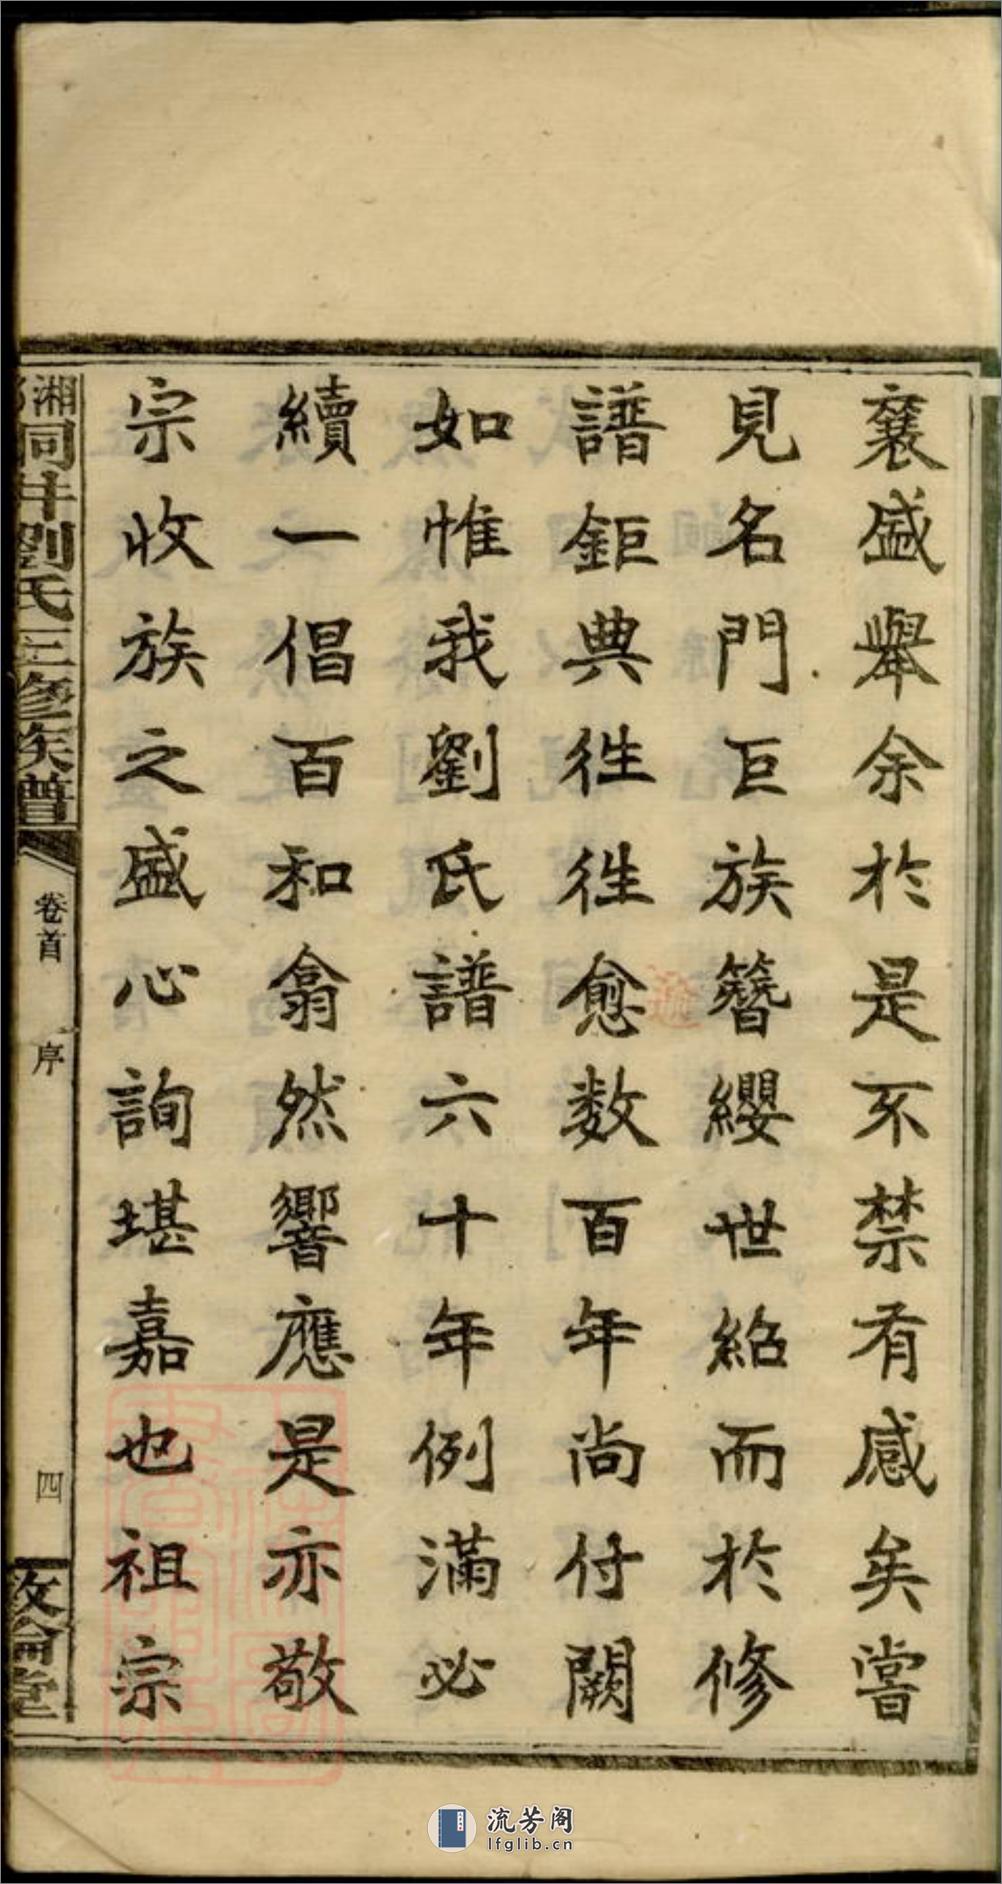 襄盛舉余於是不禁有感矣嘗
見名門巨族簪纓世紹而於修
譜鉅典徃徃愈數百年尚付闕
如惟我劉氏譜六十年例滿必
續一倡百和翕然響應是亦敬
宗收族之盛心詢堪嘉也祖宗
湘 同井劉氏三修族譜
卷首 序
四
敦倫堂
逾
流芳阁
lfglib.cn